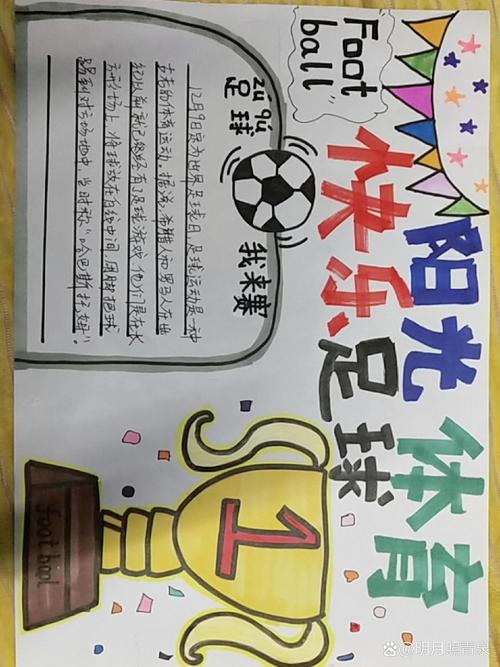 Foot
ball
阳光体育
快乐足球
足球
我来赛
12月9日定为世界足球日,足球运动是一种
古老的体育运动,据说,希腊人和罗马人在中
世纪以前就已经从事足球游戏,他们在长
方形场上,将球放在白线中间,用脚把球
踢到对方场地中,当时称“哈巴斯托姆”。
1
football
明月照青泉